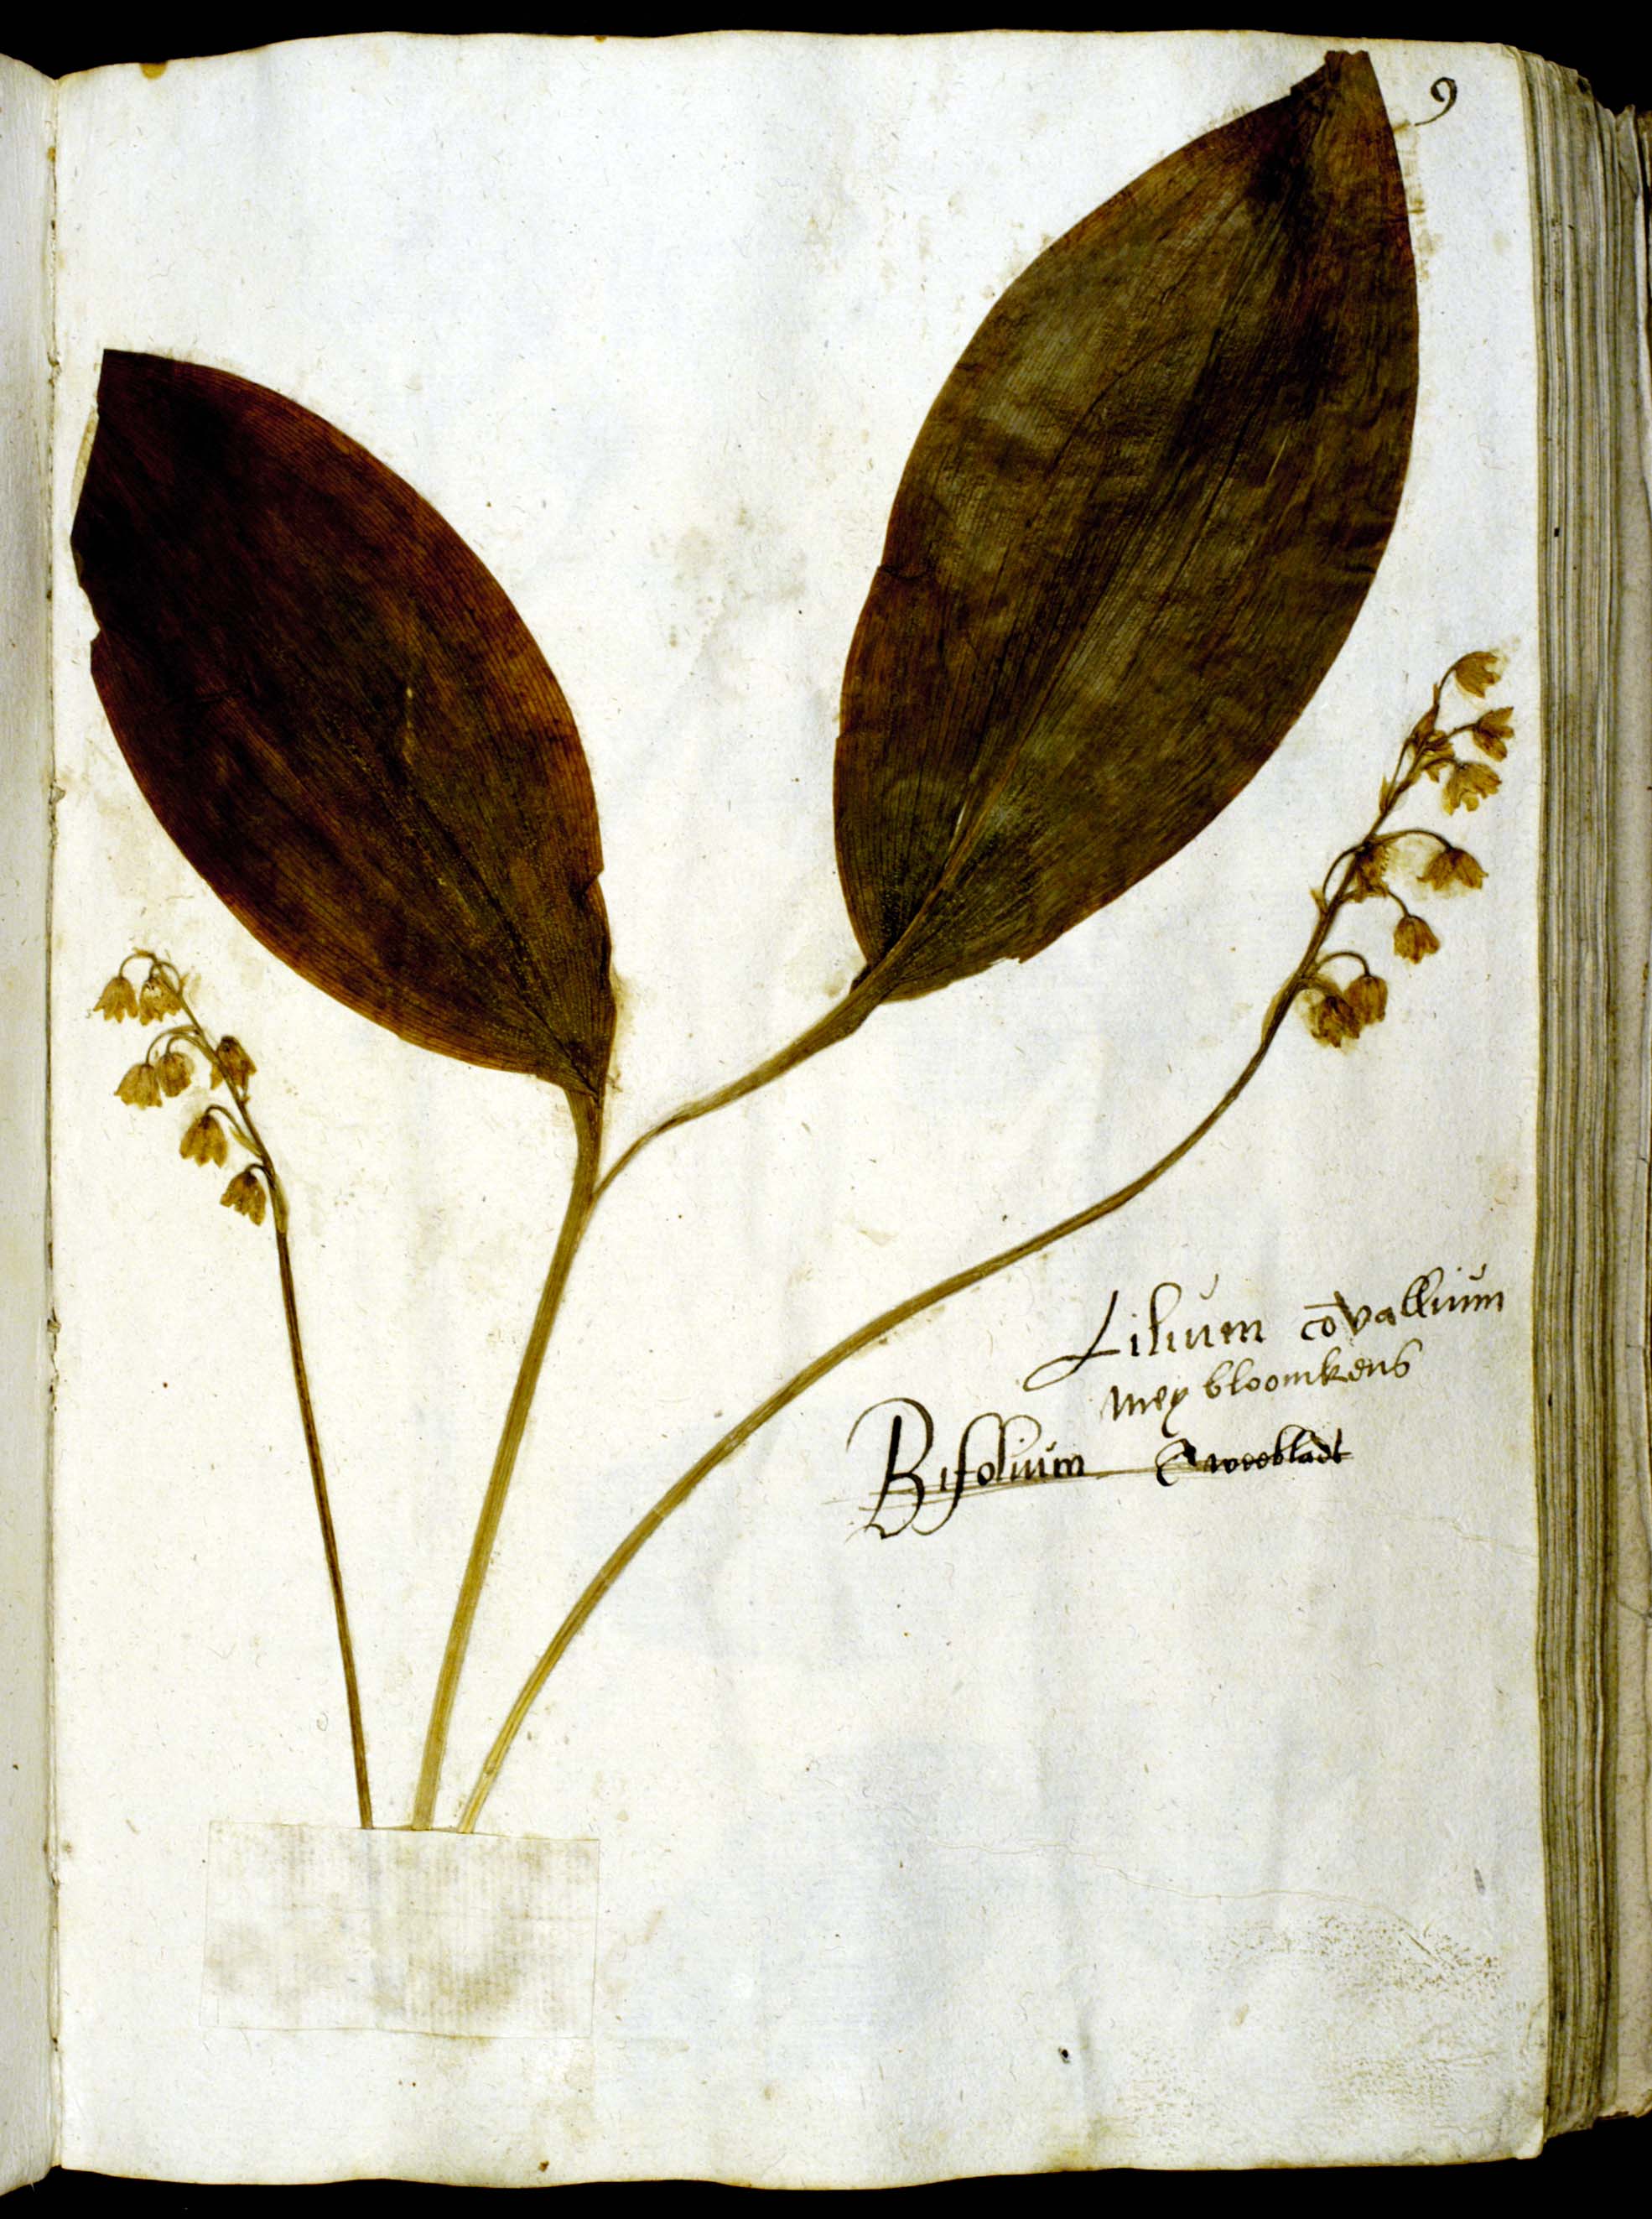 9
Lilium cōvallium
mey bloomkens
Bifolium Tweebladt